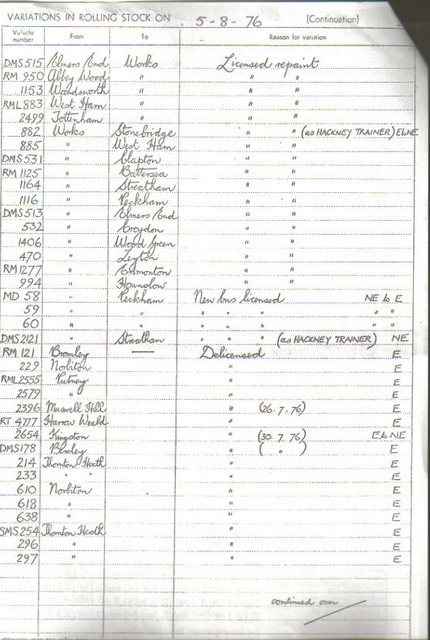 VARIATIONS IN ROLLING STOCK ON 5-8-76 (Continuation)
Vehicle number From To Reason for variation
DMS 515 Elmers End Works Licensed repaint
RM 950 Abbey Wood " " "
1153 Wandsworth " " "
RML 883 West Ham " " "
2499 Tottenham " " "
882 Works Stonebridge " " (as HACKNEY TRAINER) E to NE
885 " West Ham " "
DMS 531 " Clapton " "
RM 1125 " Battersea " "
1164 " Streatham " "
1116 " Peckham " "
DMS 513 " Elmers End " "
532 " Croydon " "
1406 " Wood Green " "
470 " Leyton " "
RM 1277 " Edmonton " "
994 " Hounslow " "
MD 58 Peckham New bus licensed NE to E
59 " " " " " "
60 " " " " " "
DMS 2121 Streatham " " " (as HACKNEY TRAINER) NE
RM 121 Bromley — Delicensed E
229 Norbiton " E
RML 2555 Putney " E
2579 " " E
2396 Muswell Hill " (26.7.76) E
RT 4777 Harrow Weald " E
2654 Kingston " (30.7.76) E to NE
DMS 178 Bexley " ( " ) E
214 Thornton Heath " E
233 " " " E
610 Norbiton " E
618 " " E
638 " " E
SMS 254 Thornton Heath " E
296 " " E
297 " " E
continued over